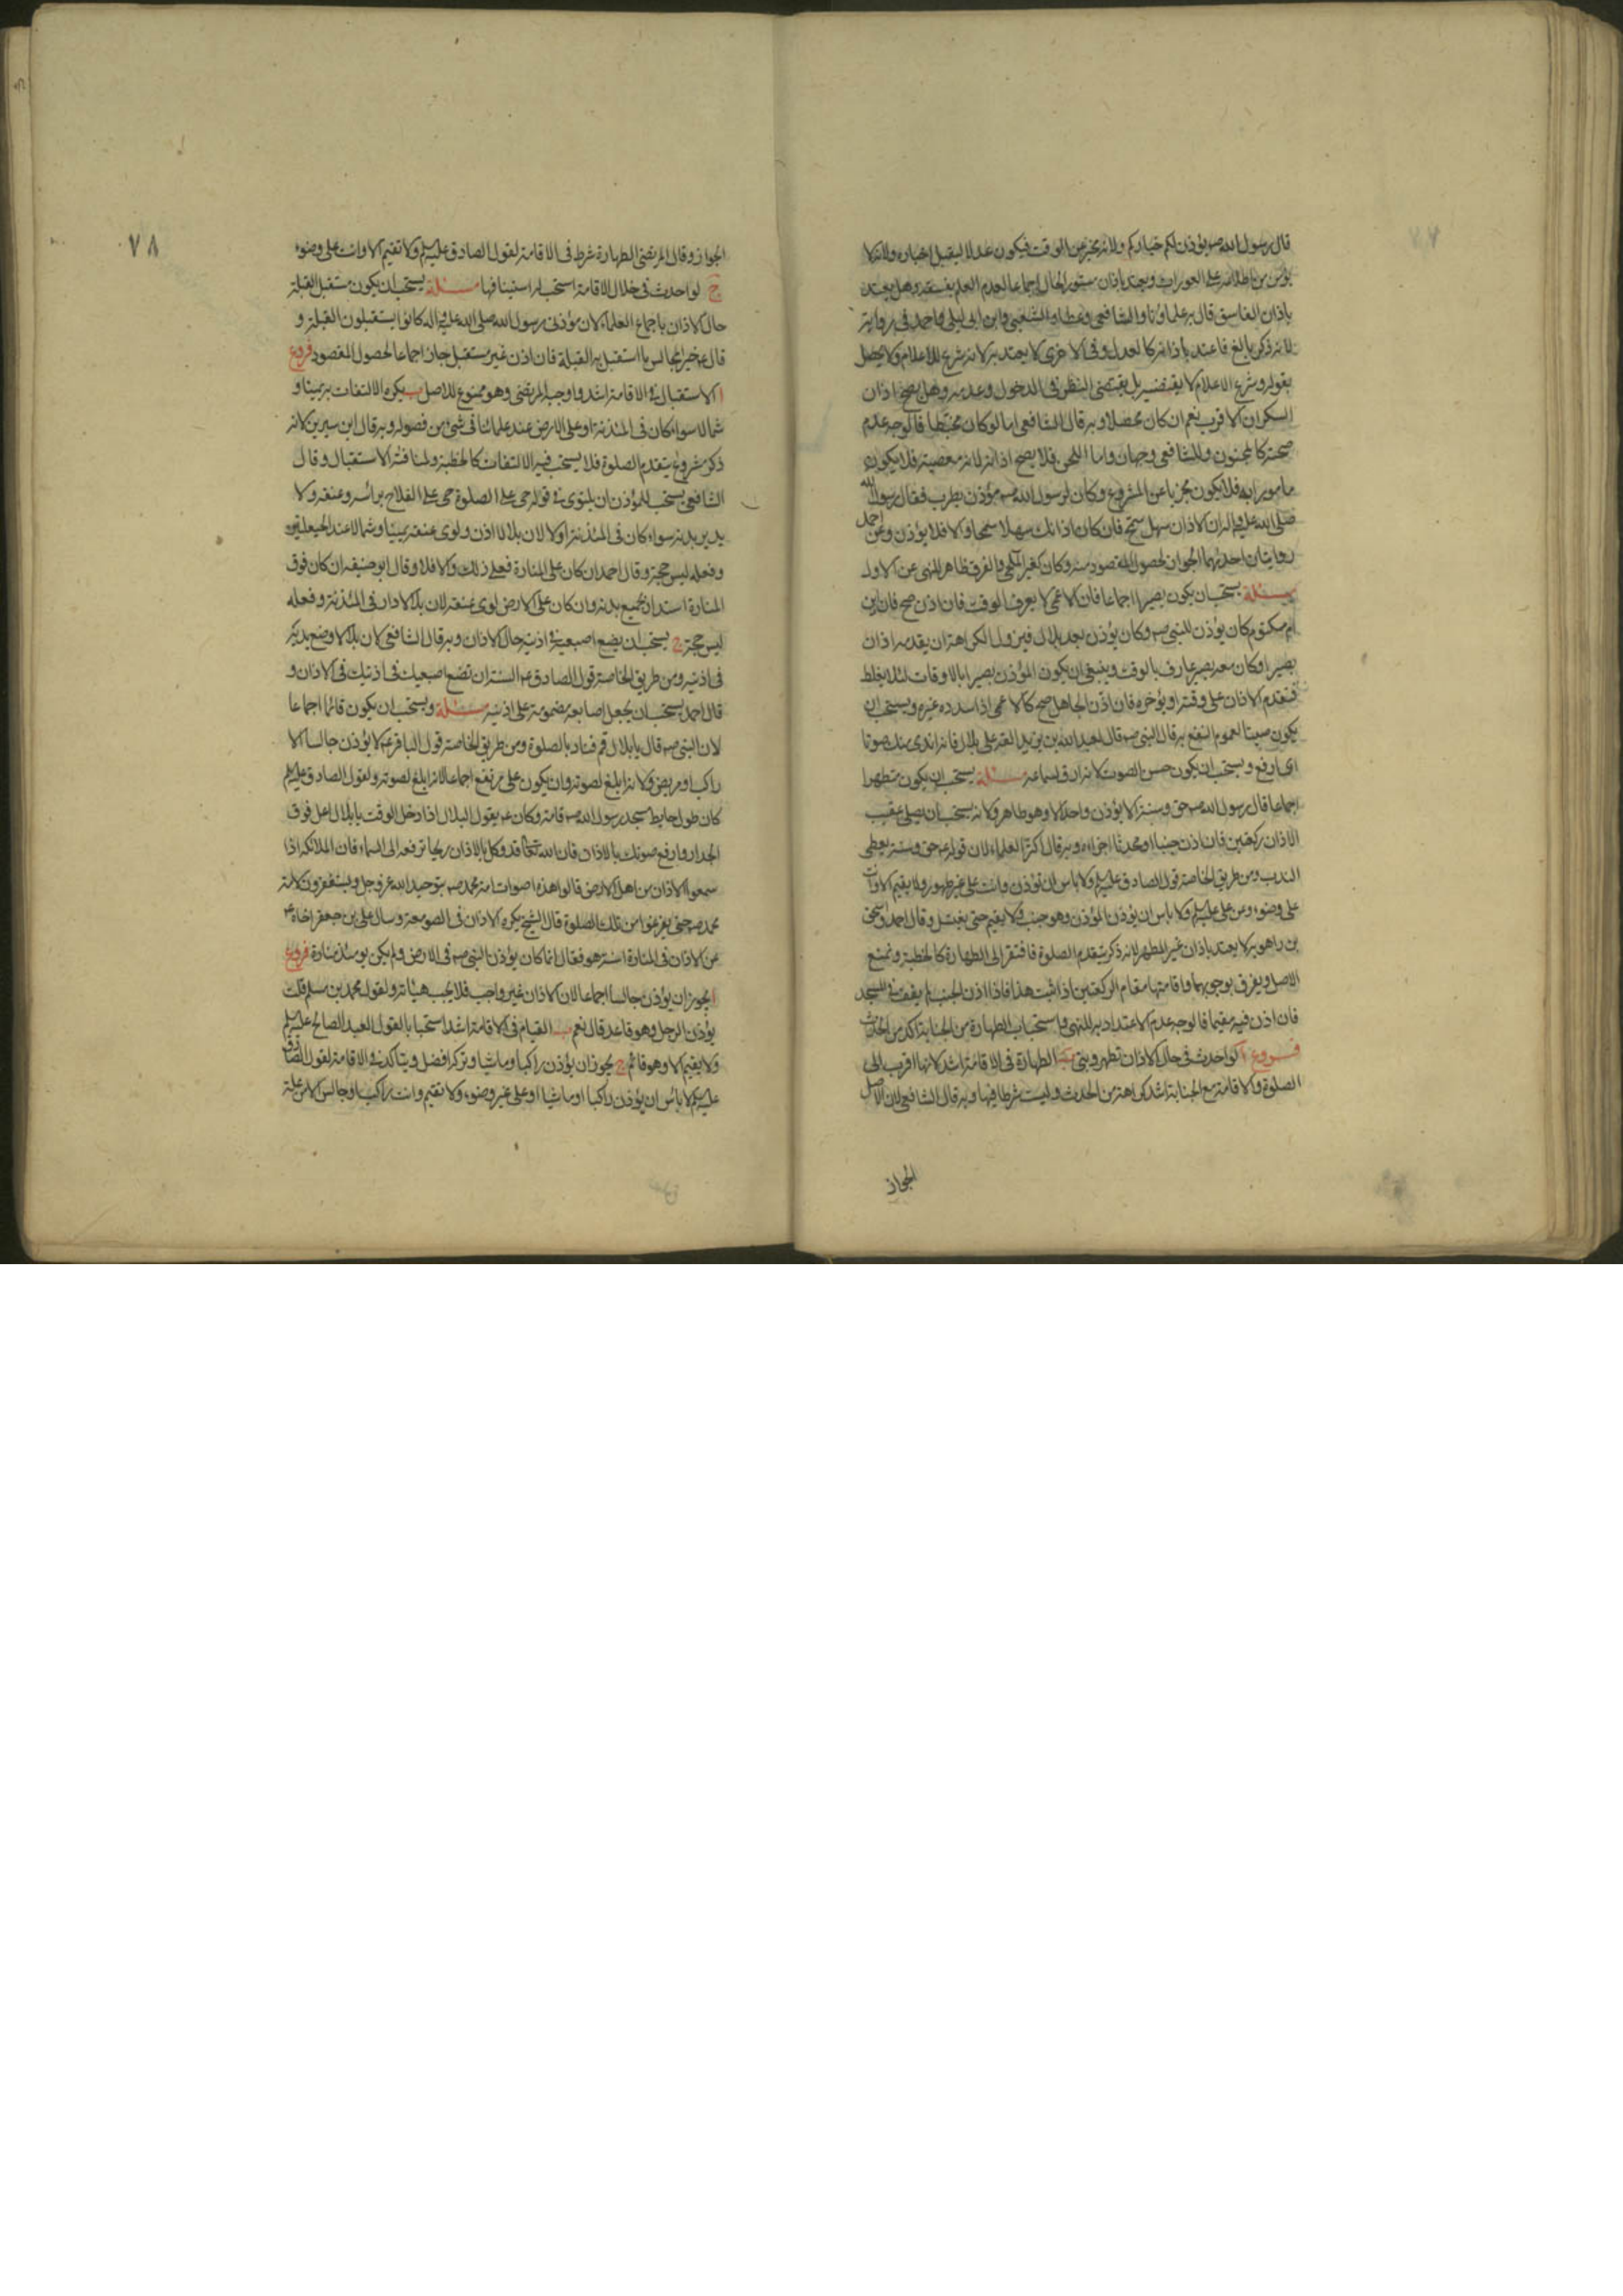 قال رسول الله صم يؤذن لكم خياركم ولانه مخبر عن الوقت فيكون عدلا ليقبل اخباره ولانه لا
يؤمن من اطلاعه على العورات ويعتد باذان مستور الحال اجماعا لعدم العلم بفسقه وهل يعتد
باذان الفاسق قال به علماؤنا والشافعي وعطاء والشعبي وابن ابي ليلى واحمد في رواية
لانه ذكر بالغ فاعتد باذانه كالعدل وفي الاخرى لا يعتد به لانه شرع للاعلام ولا يحصل
بقوله وشرع الاعلام لا يقتضيه بل يقتضي النظر في الدخول وعدمه وهل يصح اذان
السكران الاقرب نعم ان كان محصلا وبه قال الشافعي اما لو كان مخبطا فالوجه عدم
صحته كالمجنون وللشافعي وجهان واما اللحن فلا يصح اذانه لانه معصية فلا يكون
مامورا به فلا يكون مجزيا عن المشروع وكان لرسول الله صم مؤذن يطرب فقال رسول الله
صلى الله عليه واله ان الاذان سهل سمح فان كان اذانك سهلا سمحا والا فلا يؤذن وعن احمد
روايتان احديهما الجواز لحصول المقصود منه وكان كغير الملحن والفرق ظاهر للنهي عن الاول
مسئلة يستحب ان يكون بصيرا اجماعا فان الاعمى لا يعرف الوقت فان اذن صح فان ابن
ام مكتوم كان يؤذن للنبي صم وكان يؤذن بعد بلال فيزول الكراهة ان يقدمه اذان
بصير او كان معه بصير عارف بالوقت وينبغي ان يكون المؤذن بصيرا بالاوقات لئلا يغلط
فيقدم الاذان على وقته او يؤخره فان اذن الجاهل صح كالاعمى اذا سدده غيره ويستحب ان
يكون صيتا لعموم النفع به قال النبي صم قال لعبد الله بن زيد القه على بلال فانه اندى منك صوتا
اي ارفع ويستحب ان يكون حسن الصوت لانه ارق لسماعه مسئلة يستحب ان يكون متطهرا
اجماعا قال رسول الله صم حق وسنة الا يؤذن واحد الا وهو طاهر ولانه يستحب ان يصلي عقيب
الاذان ركعتين فان اذن جنبا او محدثا اجزاه وبه قال اكثر العلماء لان قوله عم حق وسنة يعطي
الندب ومن طريق الخاصة قول الصادق عليه السلم ولا باس ان تؤذن وانت على غير طهور ولا يقيم الا وانت
على وضوء وعن علي عليه السلم ولا باس ان يؤذن المؤذن وهو جنب ولا يقيم حتى يغتسل وقال احمد واسحق
بن راهويه لا يعتد باذان غير المتطهر لانه ذكر يتقدم الصلوة فافتقر الى الطهارة كالخطبة ونمنع
الاصل ويفرق بوجوبهما واقامتهما مقام الركعتين اذا ثبت هذا فاذا اذن الجنب لم يقف في المسجد
فان اذن فيه مقيما فالوجه عدم الاعتداد به للنهي واستحباب الطهارة من الجنابة اكد من الحدث
فروع ا لو احدث في حال الاذان تطهر وبنى ب الطهارة في الاقامة اشد لانها اقرب الى
الصلوة والاقامة مع الجنابة اشد كراهة من الحدث وليست شرطا فيها وبه قال الشافعي لان الاصل
الجواز
٧٨
الجواز وقال المرتضى الطهارة شرط في الاقامة لقول الصادق عليه السلم ولا تقيم الا وانت على وضوء
ج لو احدث في خلال الاقامة استحب له استينافها مسئلة يستحب ان يكون مستقبل القبلة
حال الاذان باجماع العلماء لان مؤذني رسول الله صلى الله عليه واله كانوا يستقبلون القبلة و
قال عم خير المجالس ما استقبل به القبلة فان اذن غير مستقبل جاز اجماعا لحصول المقصود فروع
ا الاستقبال في الاقامة اشد واوجبه المرتضى وهو ممنوع للاصل ب يكره الالتفات به يمينا و
شمالا سواء كان في المئذنة او على الارض عند علمائنا في شئ من فصوله وبه قال ابن سيرين لانه
ذكر مشروع يتقدم الصلوة فلا يستحب فيه الالتفات كالخطبة ولمنافته الاستقبال وقال
الشافعي يستحب للمؤذن ان يلتوى في قوله حي على الصلوة حي على الفلاح براسه وعنقه ولا
يدير بدنه سواء كان في المئذنة او لا لان بلالا اذن ولوى عنقه يمينا وشمالا عند الحيعلتين
وفعله ليس حجة وقال احمد ان كان على المنارة فعل ذلك والا فلا وقال ابو حنيفة ان كان فوق
المنارة استدار بجميع بدنه وان كان على الارض لوى عنقه لان بلالا دار في المئذنة وفعله
ليس حجة ج يستحب ان يضع اصبعيه في اذنيه حال الاذان وبه قال الشافعي لان بلالا وضع يديه
في اذنيه ومن طريق الخاصة قول الصادق عم السنة ان تضع اصبعيك في اذنيك في الاذان و
قال احمد يستحب ان يجعل اصابعه مضمومة على اذنيه مسئلة ويستحب ان يكون قائما اجماعا
لان النبي صم قال يا بلال قم فناد بالصلوة ومن طريق الخاصة قول الباقر عم لا يؤذن جالسا الا
راكب او مريض ولانه ابلغ لصوته وان يكون على مرتفع اجماعا لانه ابلغ لصوته ولقول الصادق عليه السلم
كان طول حايط مسجد رسول الله صم قامة وكان عم يقول لبلال اذا دخل الوقت يا بلال اعل فوق
الجدار وارفع صوتك بالاذان فان الله تعالى قد وكل بالاذان ريحا ترفعه الى السماء فان الملائكة اذا
سمعوا الاذان من اهل الارض قالوا هذه اصوات امة محمد صم بتوحيد الله عز وجل ويستغفرون لامة
محمد صم حتى يفرغوا من تلك الصلوة قال الشيخ يكره الاذان في الصومعة وسال علي بن جعفر اخاه عم
عن الاذان في المنارة اسنة هو فقال انما كان يؤذن للنبي صم في الارض ولم يكن يومئذ منارة فروع
ا يجوز ان يؤذن جالسا اجماعا لان الاذان غير واجب فلا يجب هيئاته ولقول محمد بن مسلم قلت
يؤذن الرجل وهو قاعد قال نعم ب القيام في الاقامة اشد استحبابا لقول العبد الصالح عليه السلم
ولا يقيم الا وهو قائم ج يجوز ان يؤذن راكبا وماشيا وتركه افضل ويتاكد في الاقامة لقول الصادق
عليه السلم لا باس ان يؤذن راكبا او ماشيا او على غير وضوء ولا تقيم وانت راكب او جالس الا من علة